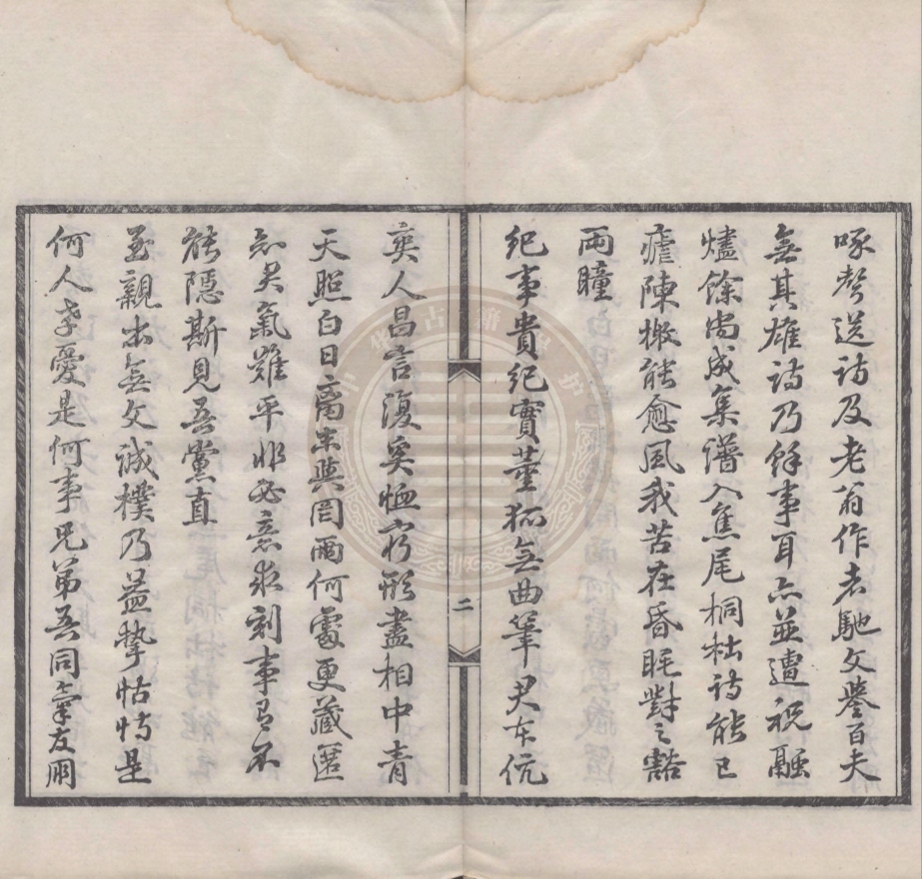 啄聲送詩及老翁作者馳文譽百夫
無其雄詩乃餘事耳亦并遭祝融
燼餘尚成集譜入焦尾桐杜詩能已
瘧陳檄能愈風我苦在昏眊對之豁
兩瞳
紀事貴紀實董狐無曲筆君本伉
爽人昌言復奚恤窮形盡相中青
天照白日禹未與罔兩何處更藏匿
知君氣難平非必意求刻事有不
能隱斯見吾黨直
至親出無文誠樸乃益摯怙恃是
何人孝愛是何事兄弟吾同氣友朋
二